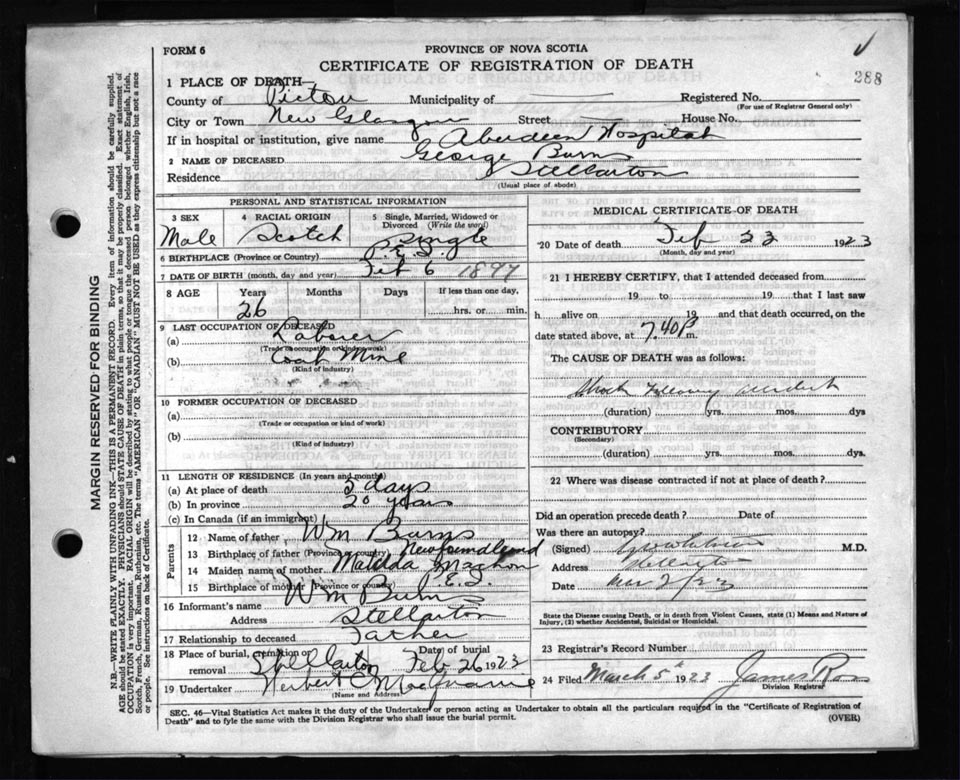 FORM 6
PROVINCE OF NOVA SCOTIA
CERTIFICATE OF REGISTRATION OF DEATH
288
1 PLACE OF DEATH—
County of Pictou Municipality of Registered No.
(For use of Registrar General only)
City or Town New Glasgow Street House No.
If in hospital or institution, give name Aberdeen Hospital
2 NAME OF DECEASED George Burns
Residence Stellarton
(Usual place of abode)
PERSONAL AND STATISTICAL INFORMATION
3 SEX Male
4 RACIAL ORIGIN Scotch
5 Single, Married, Widowed or Divorced (Write the word) Single
6 BIRTHPLACE (Province or Country) P.E.I.
7 DATE OF BIRTH (month, day and year) Feb 6 1897
8 AGE Years Months Days If less than one day,
26 hrs. or min.
9 LAST OCCUPATION OF DECEASED
(a) Laborer
(Trade or occupation or kind of work)
(b) Coal Mine
(Kind of industry)
10 FORMER OCCUPATION OF DECEASED
(a)
(Trade or occupation or kind of work)
(b)
(Kind of Industry)
11 LENGTH OF RESIDENCE (In years and months)
(a) At place of death days
(b) In province 20 years
(c) In Canada (if an immigrant)
Parents
12 Name of father Wm Burns
13 Birthplace of father (Province or country) Newfoundland
14 Maiden name of mother Matilda
15 Birthplace of mother (Province or country) P.E.I.
16 Informant's name Wm Burns
Address Stellarton
17 Relationship to deceased Father
18 Place of burial, cremation or removal Stellarton Date of burial Feb 26 1923
19 Undertaker Herbert C
(Name and Address)
MEDICAL CERTIFICATE OF DEATH
20 Date of death Feb 23 1923
(Month, day and year)
21 I HEREBY CERTIFY, that I attended deceased from
19 to 19 that I last saw
h alive on 19 and that death occurred, on the
date stated above, at 7.40 P.m.
The CAUSE OF DEATH was as follows:
Shock following accident
(duration) yrs. mos. dys
CONTRIBUTORY
(Secondary)
(duration) yrs. mos. dys.
22 Where was disease contracted if not at place of death?
Did an operation precede death? Date of
Was there an autopsy?
(Signed) M.D.
Address Stellarton
Date
State the Disease causing Death, or in death from Violent Causes, state (1) Means and Nature of
Injury, (2) whether Accidental, Suicidal or Homicidal.
23 Registrar's Record Number
24 Filed March 5th 1923 James Ross
Division Registrar
SEC. 46—Vital Statistics Act makes it the duty of the Undertaker or person acting as Undertaker to obtain all the particulars required in the "Certificate of Registration of
Death" and to fyle the same with the Division Registrar who shall issue the burial permit.
(OVER)
MARGIN RESERVED FOR BINDING
N.B.—WRITE PLAINLY WITH UNFADING INK—THIS IS A PERMANENT RECORD. Every item of information should be carefully supplied.
AGE should be stated EXACTLY. PHYSICIANS should STATE CAUSE OF DEATH in plain terms, so that it may be properly classified. Exact statement of
OCCUPATION is very important. RACIAL ORIGIN will be described by stating to what people or tongue the deceased person belonged whether English, Irish,
Scotch, French, German, Russian, Ruthenian, etc. The terms "AMERICAN" OR "CANADIAN" MUST NOT BE USED as they express citizenship but not a race
or people. See instructions on back of Certificate.